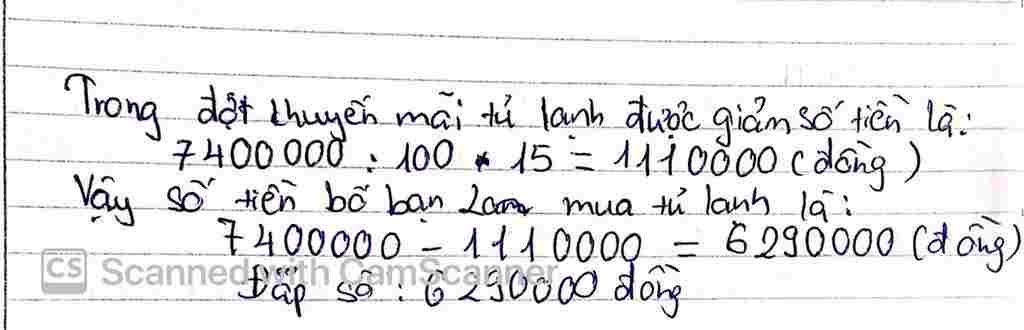 Trong đợt khuyến mãi tủ lạnh được giảm số tiền là:
7400000 : 100 * 15 = 1110000 (đồng)
Vậy số tiền bố bạn Lam mua tủ lạnh là:
7400000 - 1110000 = 6290000 (đồng)
CS Scanned with CamScanner
Đáp số : 6290000 đồng